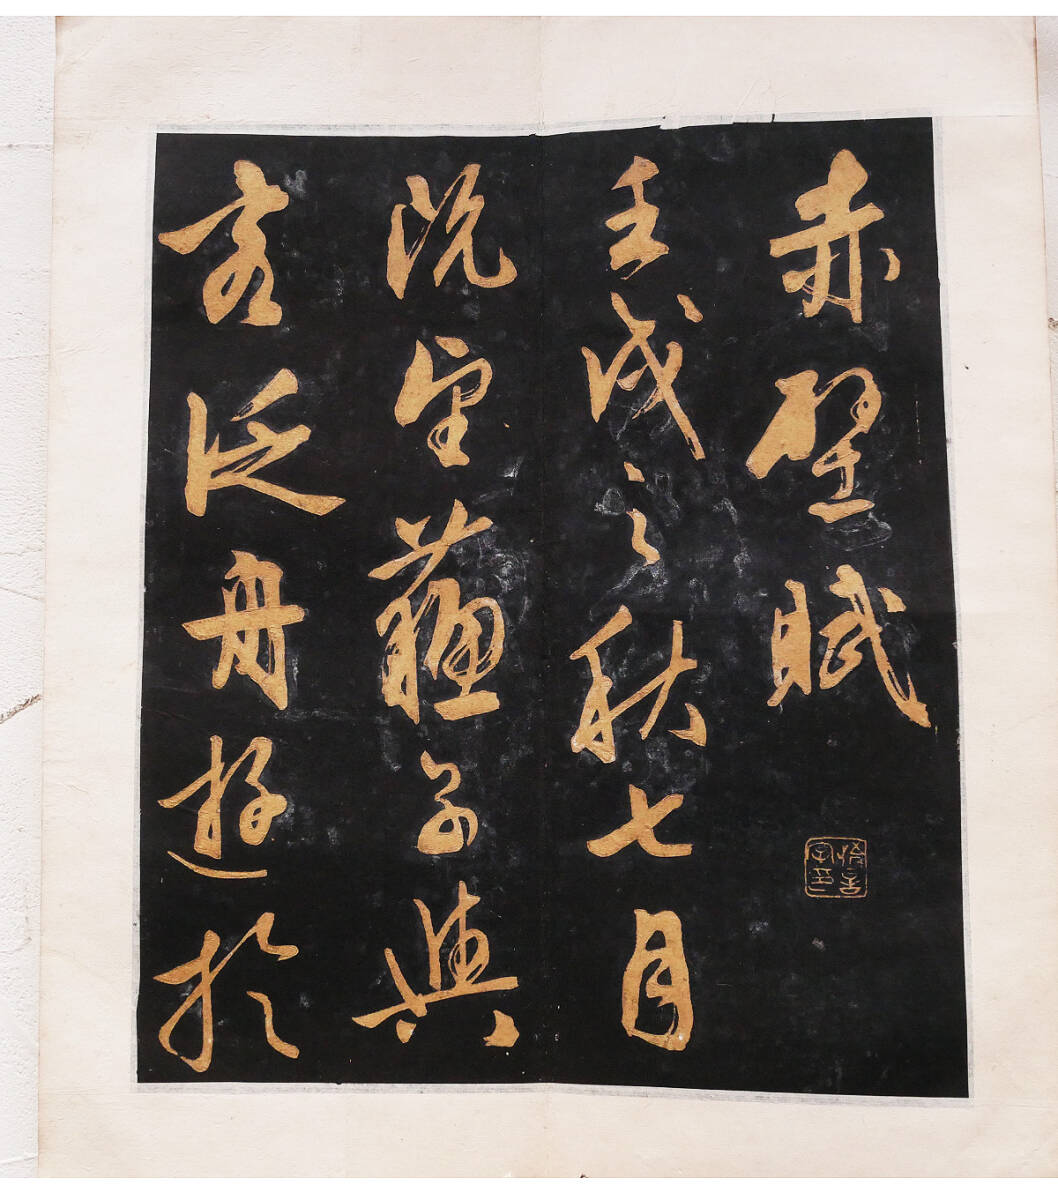 赤壁賦
壬戌之秋七月
既望蘇子與
客泛舟遊於